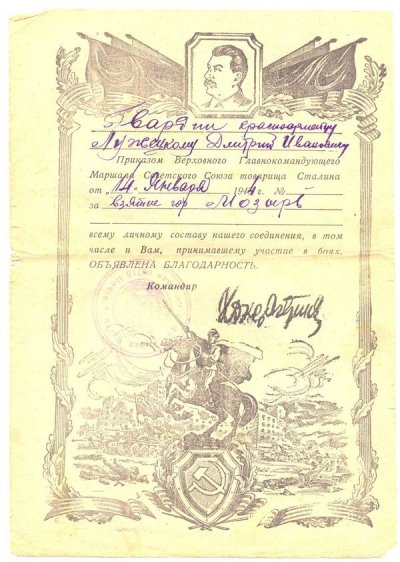 Гвардии красноармейцу
Лужецкому Дмитрий Иванович
Приказом Верховного Главнокомандующего
Маршала Советского Союза товарища Сталина
от „14 Января 1944 г. №
за взятие гор Мозырь
всему личному составу нашего соединения, в том
числе и Вам, принимавшему участие в боях,
ОБЪЯВЛЕНА БЛАГОДАРНОСТЬ.
Командир